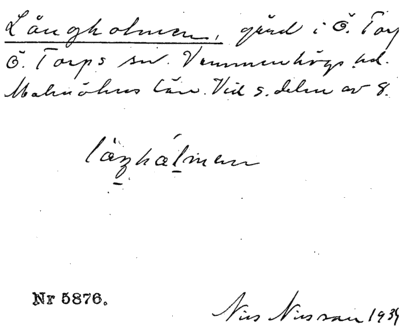 Långholmen, gård i Ö. Torp
Ö. Torps sn. Vemmenhögs hd.
Malmöhus län. Vid s. delen av g.
Nr 5876.
Nils Nilsson 1934